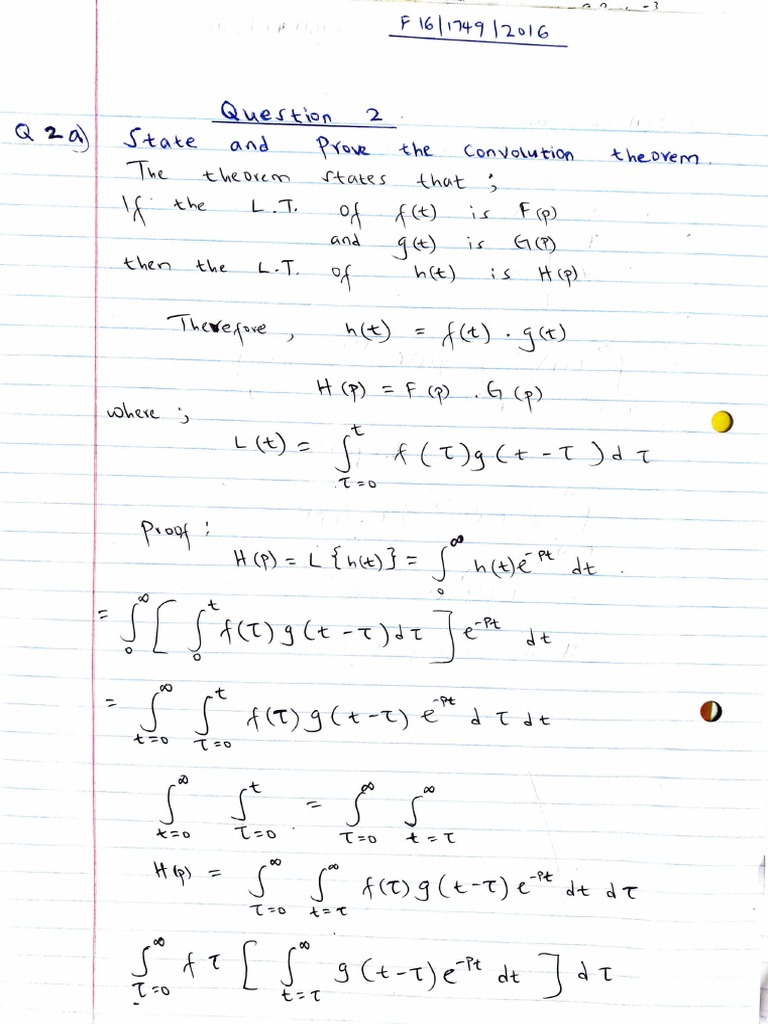 F 16/1749/2016
Question 2
Q 2 a) State and Prove the Convolution theorem.
The theorem states that ;
If the L.T. of f(t) is F(p)
and g(t) is G(P)
then the L.T. of h(t) is H(p)
Therefore, h(t) = f(t) . g(t)
H(p) = F(p) . G(p)
where ;
L(t) = ∫_{τ=0}^{t} f(τ)g(t-τ)dτ
Proof :
H(p) = L{h(t)} = ∫_0^∞ h(t)e^{-pt} dt .
= ∫_0^∞ [ ∫_0^t f(τ)g(t-τ)dτ ] e^{-pt} dt
= ∫_{t=0}^∞ ∫_{τ=0}^t f(τ)g(t-τ) e^{-pt} dτ dt
∫_{t=0}^∞ ∫_{τ=0}^t = ∫_{τ=0}^∞ ∫_{t=τ}^∞
H(p) = ∫_{τ=0}^∞ ∫_{t=τ}^∞ f(τ)g(t-τ) e^{-pt} dt dτ
∫_{τ=0}^∞ f τ [ ∫_{t=τ}^∞ g(t-τ)e^{-pt} dt ] dτ